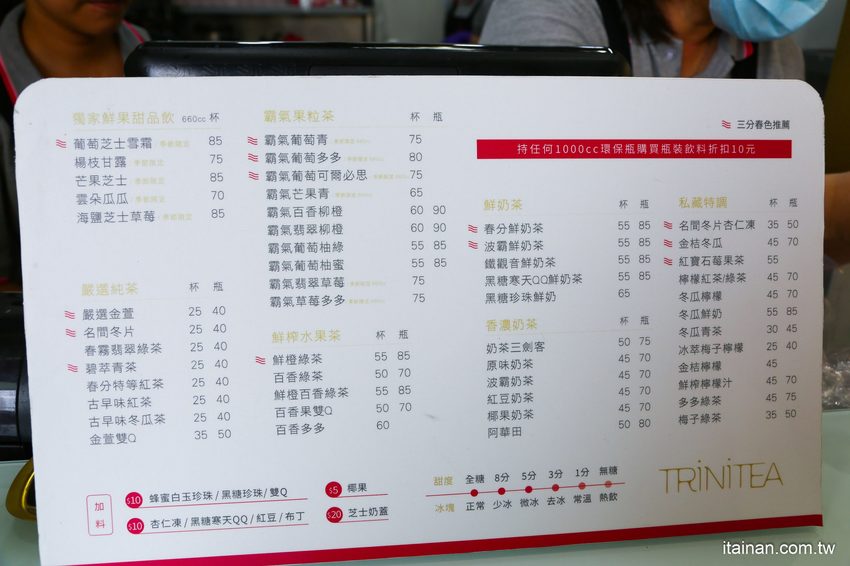 獨家鮮果甜品飲 660cc 杯
葡萄芝士雪霜 季節限定 85
楊枝甘露 季節限定 75
芒果芝士 季節限定 85
雲朵瓜瓜 季節限定 70
海鹽芝士草莓 季節限定 85
嚴選純茶 杯 瓶
嚴選金萱 25 40
名間冬片 25 40
春霧翡翠綠茶 25 40
碧萃青茶 25 40
春分特等紅茶 25 40
古早味紅茶 25 40
古早味冬瓜茶 25 40
金萱雙Q 35 50
霸氣果粒茶 杯 瓶
霸氣葡萄青 75
霸氣葡萄多多 80
霸氣葡萄可爾必思 75
霸氣芒果青 65
霸氣百香柳橙 60 90
霸氣翡翠柳橙 60 90
霸氣葡萄柚綠 55 85
霸氣葡萄柚蜜 55 85
霸氣翡翠草莓 75
霸氣草莓多多 75
鮮榨水果茶 杯 瓶
鮮橙綠茶 55 85
百香綠茶 50 70
鮮橙百香綠茶 55 85
百香果雙Q 50 70
百香多多 60
三分春色推薦
持任何1000cc環保瓶購買瓶裝飲料折扣10元
鮮奶茶 杯 瓶
春分鮮奶茶 55 85
波霸鮮奶茶 55 85
鐵觀音鮮奶茶 55 85
黑糖寒天QQ鮮奶茶 55 85
黑糖珍珠鮮奶 65
香濃奶茶 杯 瓶
奶茶三劍客 50 75
原味奶茶 45 70
波霸奶茶 45 70
紅豆奶茶 45 70
椰果奶茶 45 70
阿華田 50 80
私藏特調 杯 瓶
名間冬片杏仁凍 35 50
金桔冬瓜 45 70
紅寶石莓果茶 55
檸檬紅茶/綠茶 45 70
冬瓜檸檬 45 70
冬瓜鮮奶 55 85
冬瓜青茶 30 45
冰萃梅子檸檬 25 40
金桔檸檬 45
鮮榨檸檬汁 45 70
多多綠茶 45 75
梅子綠茶 35 50
加料
$10 蜂蜜白玉珍珠/黑糖珍珠/雙Q
$10 杏仁凍/黑糖寒天QQ/紅豆/布丁
$5 椰果
$20 芝士奶蓋
甜度 全糖 8分 5分 3分 1分 無糖
冰塊 正常 少冰 微冰 去冰 常溫 熱飲
TRINITEA
itainan.com.tw